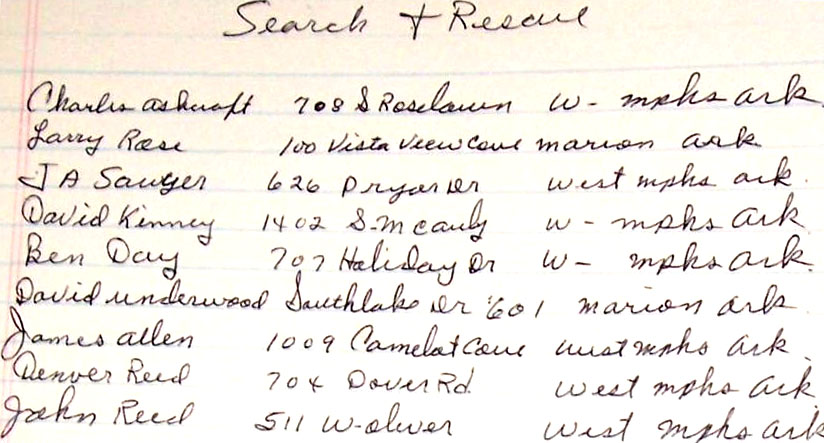 Search + Rescue
Charles Ashcraft 708 S Roselawn W - mphs Ark.
Larry Rose 100 Vista View Cove marion ark
J A Sawyer 626 Pryor Dr west mphs ark.
David Kinney 1402 S. McCauly W - mphs Ark
Ben Day 707 Holiday Dr W - mphs Ark.
David underwood Southlake Dr 601 marion ark.
James allen 1009 Camelot Cove west mphs Ark.
Denver Reed 704 Dover Rd. west mphs Ark.
John Reed 511 W-oliver west mphs Ark